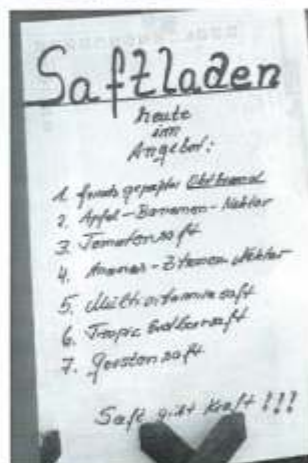 Saftladen
heute
im
Angebot:
1. frisch gepresster Obstbrand
2. Apfel-Bananen-Nektar
3. Tomatensaft
4. Ananas-Zitronen Nektar
5. Multivitaminsaft
6. Tropic Erdbeersaft
7. Gerstensaft
Saft gibt Kraft!!!